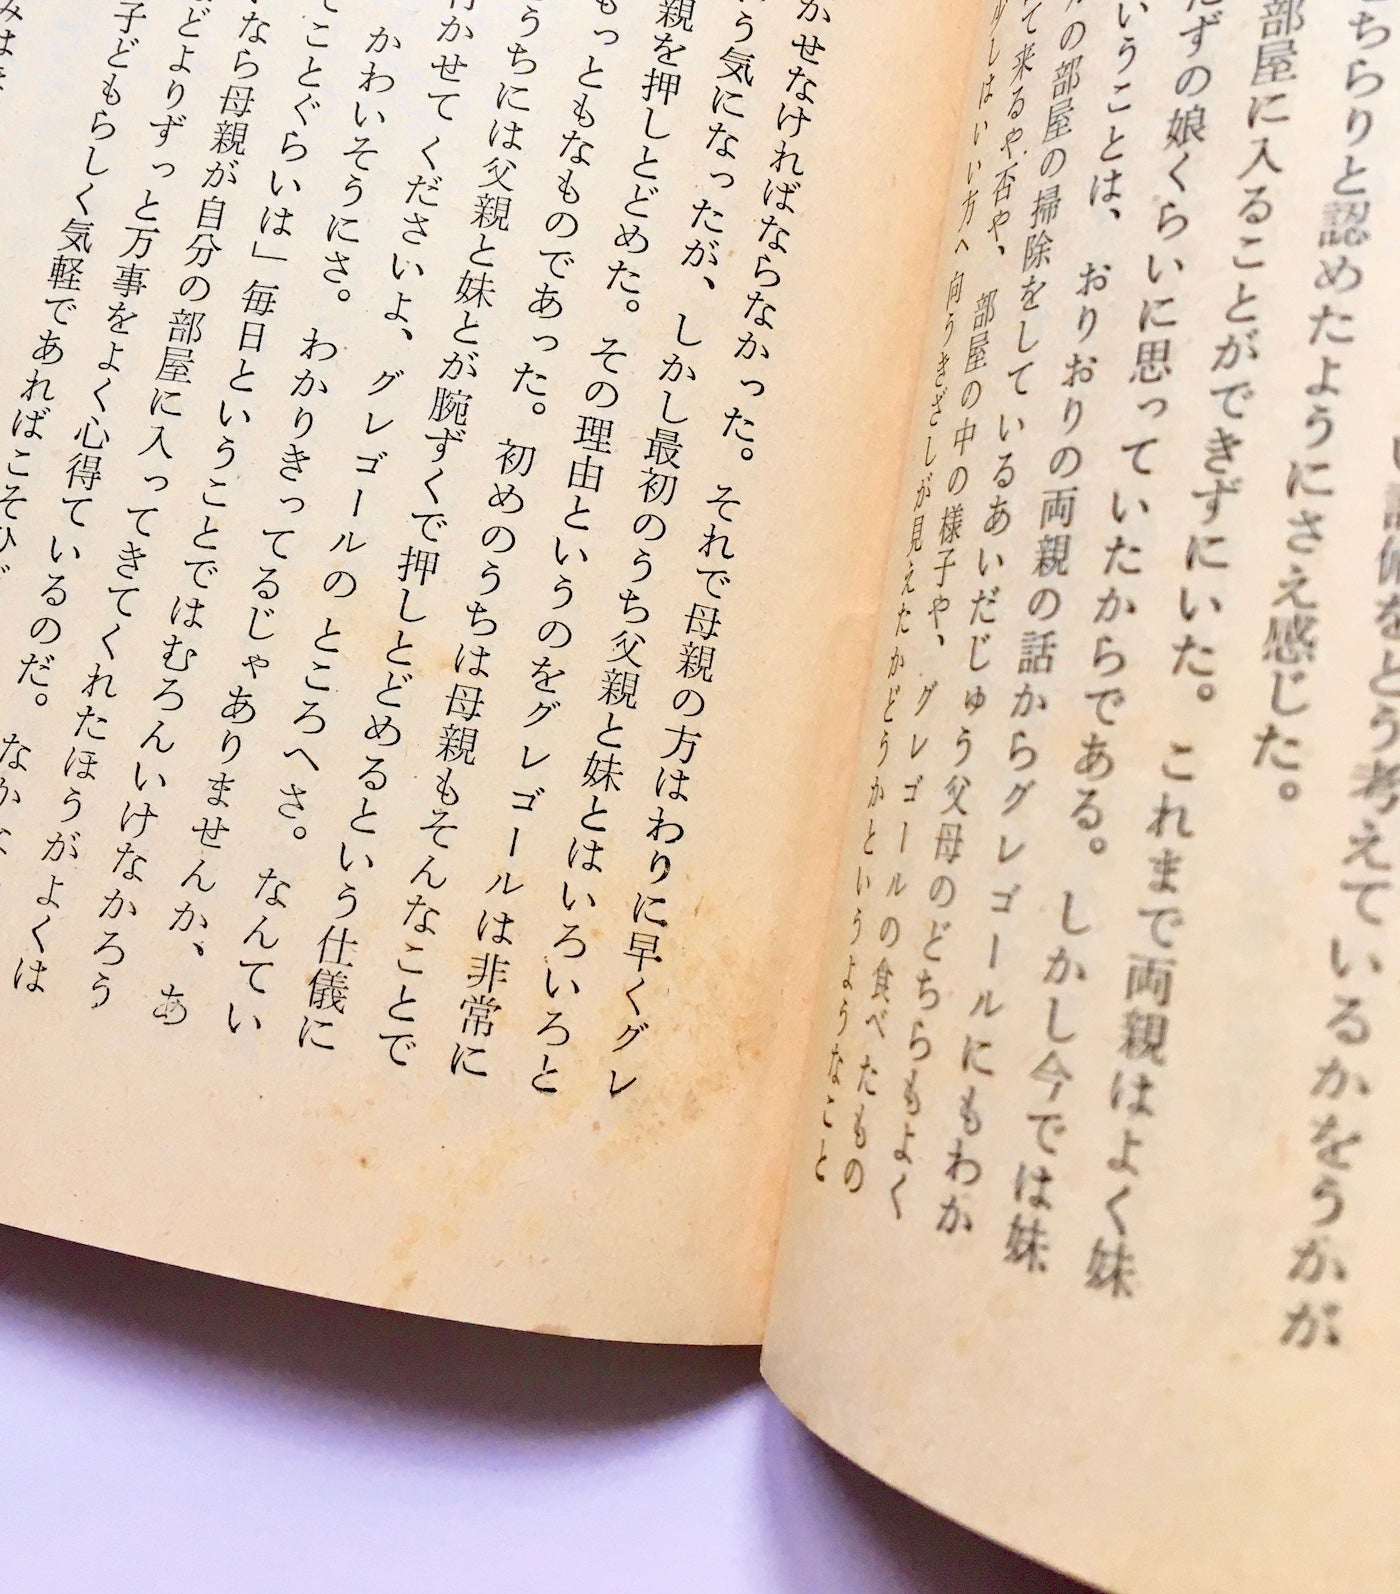 い
考えているかをうかが
ちらりと認めたようにさえ感じた。
部屋に入ることができずにいた。これまで両親はよく妹
たずの娘くらいに思っていたからである。しかし今では妹
いうことは、おりおりの両親の話からグレゴールにもわか
の部屋の掃除をしているあいだじゅう父母のどちらもよく
て来るや否や、部屋の中の様子や、グレゴールの食べたもの
少しはいい方へ向うきざしが見えたかどうかというようなこと
かせなければならなかった。それで母親の方はわりに早くグレ
う気になったが、しかし最初のうち父親と妹とはいろいろと
親を押しとどめた。その理由というのをグレゴールは非常に
もっともなものであった。初めのうちは母親もそんなことで
うちには父親と妹とが腕ずくで押しとどめるという仕儀に
行かせてくださいよ、グレゴールのところへさ。なんてい
かわいそうにさ。わかりきってるじゃありませんか、あ
てことぐらいは」毎日ということではむろんいけなかろう
なら母親が自分の部屋に入ってきてくれたほうがよくは
どよりずっと万事をよく心得ているのだ。なかな
子どもらしく気軽であればこそひど
みは